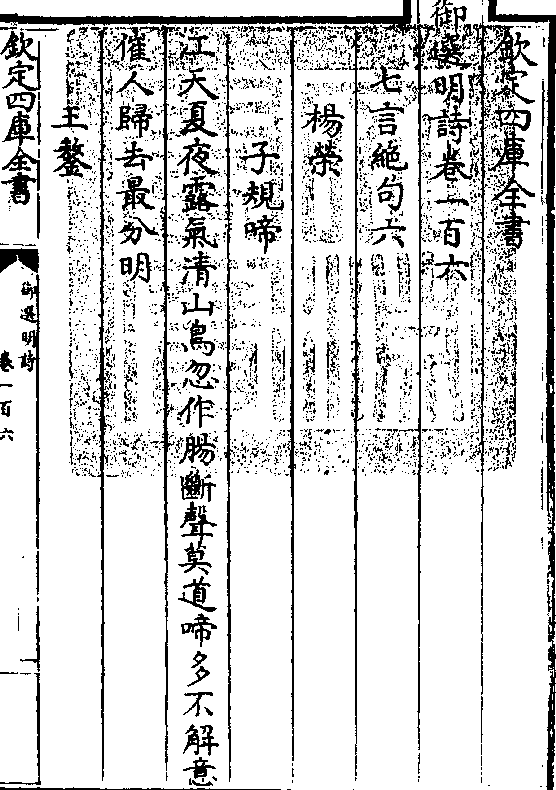 欽定四庫全書
御選明詩卷一百六
七言絶句六
楊榮
子規啼
江天夏夜露氣清山鳥忽作腸斷聲莫道啼多不解意
催人歸去最分明
王鏊
欽定四庫全書
御選明詩
卷一百六